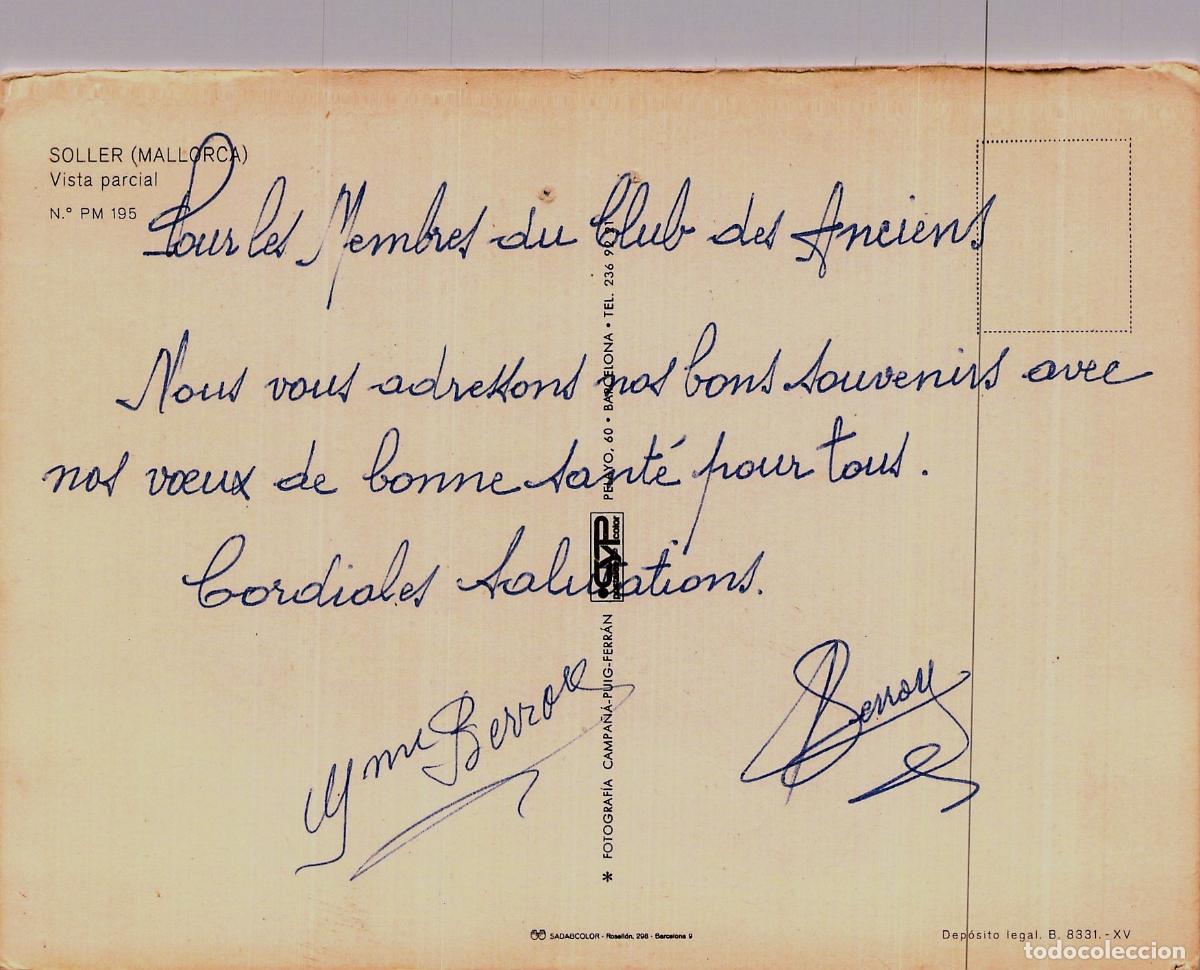 SOLLER (MALLORCA)
Vista parcial
N.° PM 195
Pour les Membres du Club des Anciens
Nous vous adressons nos bons souvenirs avec
nos vœux de bonne santé pour tous.
Cordiales salutations.
Mme
* FOTOGRAFÍA CAMPAÑÁ-PUIG-FERRÁN
CYP
color
PELAYO, 60 • BARCELONA • TEL. 236 92 21
SADAGCOLOR - Rosellón, 298 - Barcelona 9
Depósito legal. B. 8331. - XV
todocoleccion